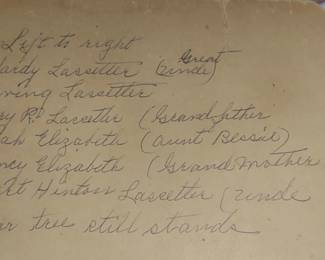 Left to right
ardy Lassetter (Great Uncle)
ving Lassetter
ry R. Lassetter (Grandfather
ah Elizabeth (Aunt Bessie)
ncy Elizabeth (Grand Mother
rt Hinton Lassetter (Uncle
ar tree still stands